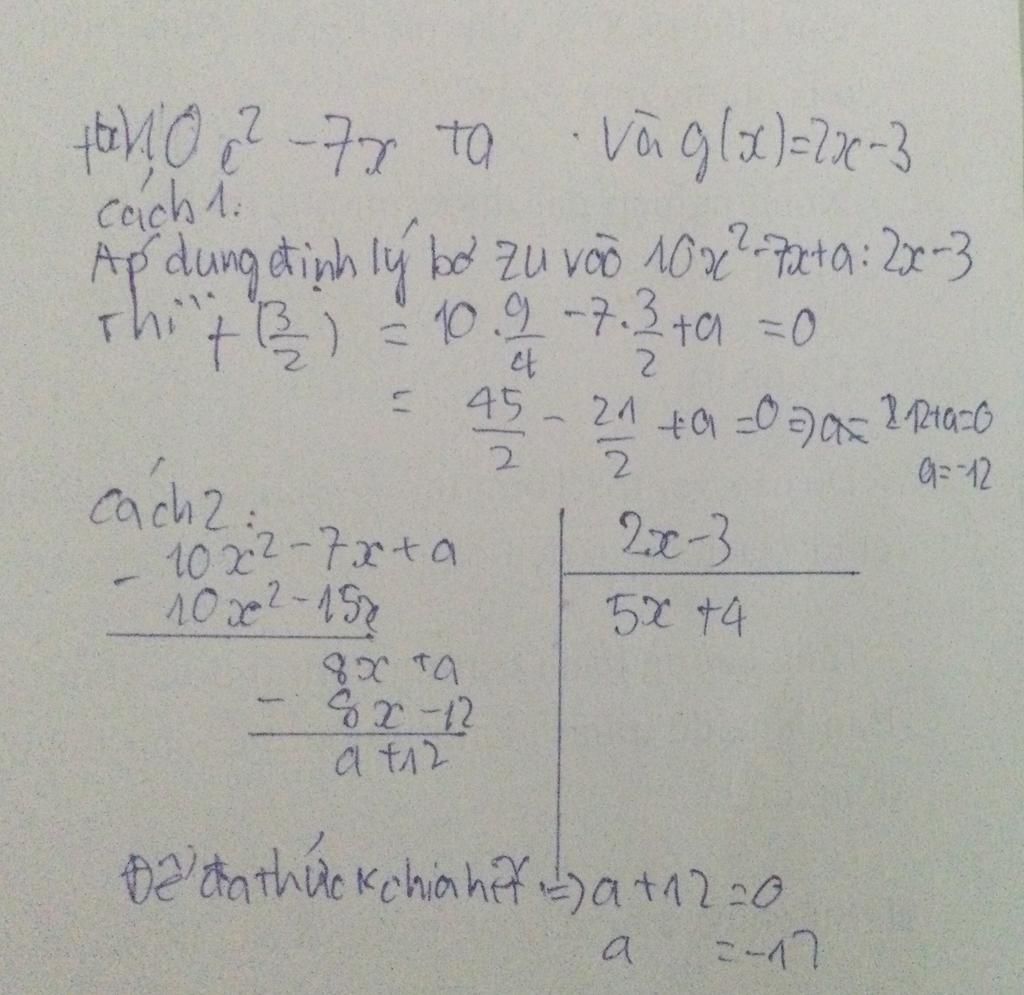 10x² - 7x + a và g(x)=2x-3
Cách 1:
Áp dụng định lý bơ zu vào 10x²-7x+a : 2x-3
Thì f(3/2) = 10.9/4 - 7.3/2 + a = 0
= 45/2 - 21/2 + a = 0 => a = 12+a=0
a=-12
Cách 2:
- 10x² - 7x + a | 2x-3
10x² - 15x | 5x + 4
8x + a
- 8x - 12
a + 12
Để đa thức chia hết => a + 12 = 0
a = -12